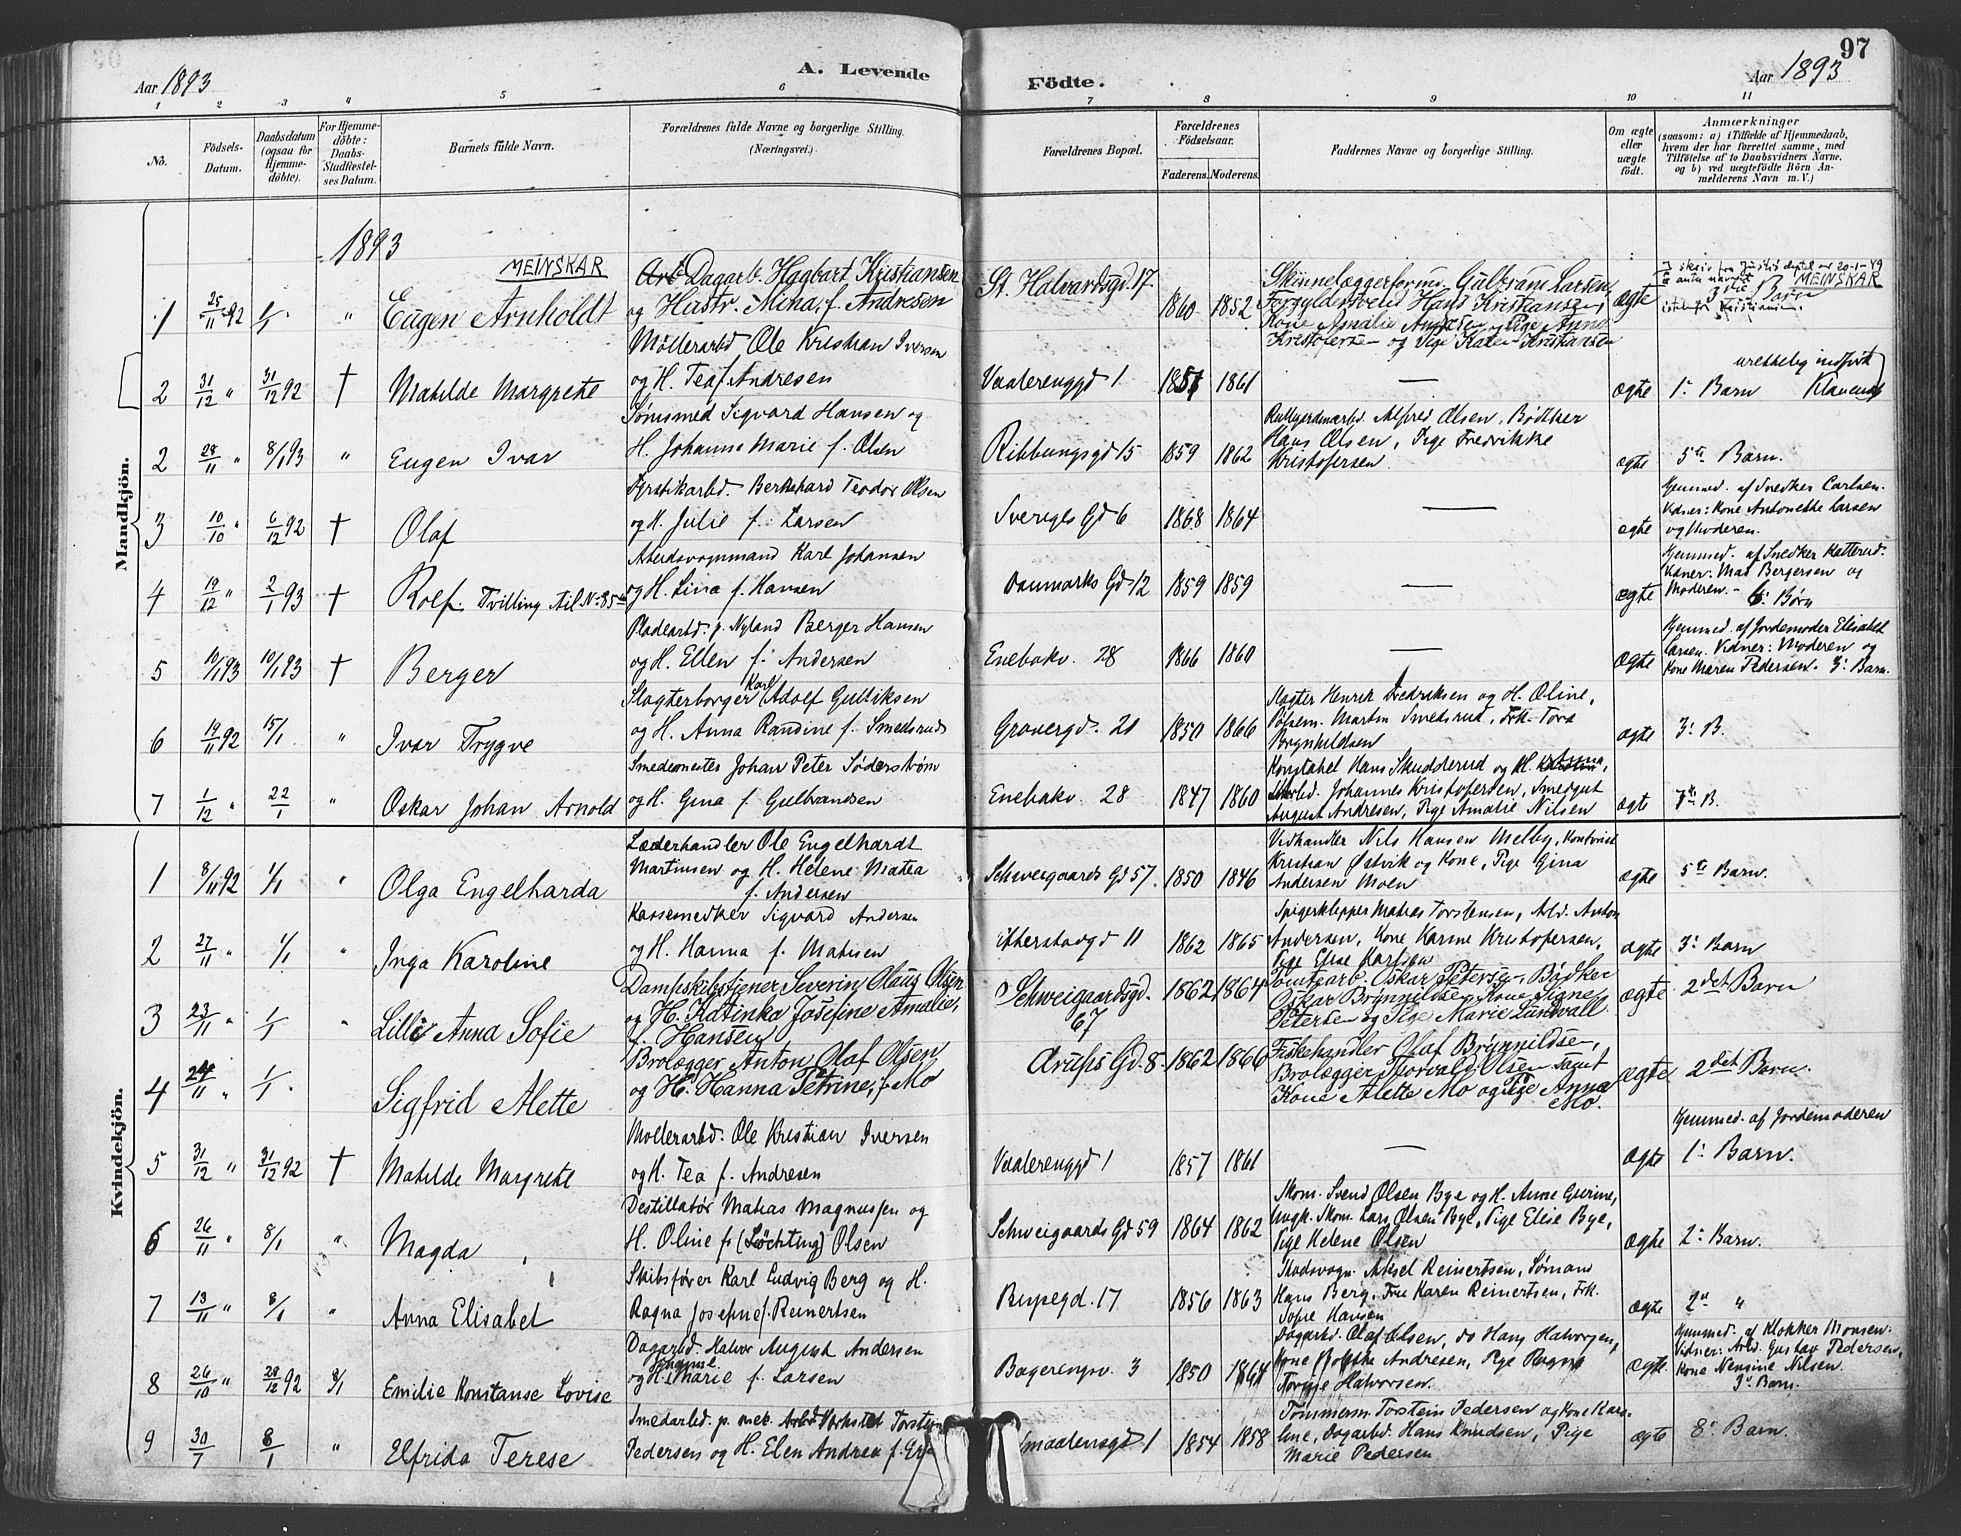 97
Aar 1893
A. Levende
Födte.
Aar 1893
1 2 3 4 5 6 7 8 9 10 11
No.
Födsels-Datum.
Daabsdatum (ogsaa for Hjemme-döbte).
For Hjemme-döbte: Daabs-Stadfæstel-ses Datum.
Barnets fulde Navn.
Forældrenes fulde Navne og borgerlige Stilling. (Næringsvei.)
Forældrenes Bopæl.
Forældrenes Födselsaar.
Faderens. Moderens.
Faddernes Navne og borgerlige Stilling.
Om ægte eller uægte født.
Anmærkninger
(saasom: a) i Tilfælde af Hjemmedaab, hvem der har forrettet samme, med Tilføielse af to Daabsvidners Navne, og b) ved uægtefødte Börn An-melderens Navn m. V.)
1893
Mandkjön.
MEINSKAR
1 25/11 92 1/1 " Eugen Arnholdt
Dagarb. Hagbart Kristiansen
og Hustr. Mina, f. Andresen
St. Halvardsgd. 17. 1860 1852
Gulbrand Larsen,
Hans Kristiansen,
Kone Amalie og Pige Anne
Kristofersen og Pige Karen Kristiansen
ægte
20-1-49
MEINSKAR
Barn
2 31/12 " 31/12 92 † Matilde Margrete
Møllerarbd Ole Kristian Iversen
og H. Tea f. Andresen
Vaalerenggd 1. 1857 1861 — ægte
urettelig indført
1: Barn
2 28/11 " 8/1 93 " Eugen Ivar
Sømsmed Sigvard Hansen og
H. Johanne Marie f. Olsen
Ribbungsgd 15 1859 1862
Alfred Olsen, Bødker
Hans Olsen, Pige Fredrikke
Kristofersen
ægte 5te Barn.
3 10/10 " 6/12 92 † Olaf
Fyrstikarbd. Bernhard Teodor Olsen
og H. Julie f. Larsen
Sverigs Gd 6 1868 1864 — ægte
Hjemmed. af Snedker Carlsen.
Vidner: Kone Antonette Larsen
og Moderen.
4 19/12 " 2/1 93 † Rolf. Tvilling til No 85
Arbeidsvognmand Karl Johansen
og H. Lina f. Hansen
Danmarks Gd 12 1859 1859 — ægte
Hjemmed. af Snedker
Vidner: Mat Bergersen og
Moderen. – 6: Børn
5 10/1 93 10/1 93 † Berger
Pladearbd. p. Nyland Berger Hansen
og H. Ellen f. Andersen
Enebakv. 28 1866 1860 — ægte
Hjemmed. af Jordemoder Elisabet
Larsen. Vidner: Moderen og
Kone Maren Pedersen. 3: Barn.
6 19/11 92 15/1 " Ivar Trygve
Slagterborger Karl Adolf Gulliksen
og H. Anna Randine f. Smedsrud
Grønergd. 21 1850 1866
Slagter Henrik Fredriksen og H. Oline,
Martin Smedsrud, Frk. Tora
Brynhildsen
ægte 3: B.
7 1/12 " 22/1 " Oskar Johan Arnold
Smedemester Johan Peter Söderström
og H. Gina f. Gulbrandsen
Enebakv. 28 1847 1860
Konstabel Hans Skudderud og H.
Johannes Kristofersen, Smedgut
August Andresen, Pige Amalie Nilsen
ægt 7de B.
Kvindekjön.
1 8/11 92 1/1 " Olga Engelharda
Læderhandler Ole Engelhardt
Martinsen og H. Helene Matea
f. Andersen
Schweigaards Gd 57. 1850 1846
Vedhandler Nils Hansen Melby, Kontorist
Kristian Østvik og Kone, Pige Gina
Andersen Moen
ægte 5te Barn.
2 27/11 " 1/1 " Inga Karoline
Kassesnedker Sigvard Andersen
og H. Hanna f. Matisen
Etterstadgd 11 1862 1865
Spigerklipper Matias Torstensen, Arbd. Anton
Andersen, Kone Karine Kristofersen,
Pige Elise Karlsen
ægte 3: Barn
3 23/11 " 1/1 " Lilli Anna Sofie
Dampskibstjener Severin Olaus Olsen
og H. Katinka Josefine Amalie,
f. Hansen
Schweigaardsgd. 67 1862 1864
Oskar Petersen, Bødker
Oskar Brynnildsen, Kone Signe
Petersen og Pige Marie Lundvall.
ægte 2det Barn
4 24/11 " 1/1 Sigfrid Alette
Brolægger Anton Olaf Olsen
og H. Hanna Petrine, f. Mo
Arups Gd. 8. 1862 1866
Fiskehandler Olaf Brynnildsen,
Brolægger Thorvald Olsen samt
Kone Alette Mo og Pige Anna
Mo.
ægte 2det Barn.
5 31/12 " 31/12 92 † Matilde Margrete
Møllerarbd. Ole Kristian Iversen
og H. Tea f. Andresen
Vaalerenggd 1 1857 1861 — ægte
Hjemmed. af Jordemoderen
1: Barn.
6 26/11 " 8/1 " Magda
Destillatør Matias Magnussen og
H. Oline f. (Løchting) Olsen
Schweigaards Gd 59 1864 1862
Skom. Svend Olsen Bye og H. Anne Gurine,
Ungk. Skom. Lars Olsen Bye, Pige Elise Bye,
Pige Helene Olsen
ægte 2: Barn.
7 13/11 " 8/1 " Anna Elisabet
Skibsfører Karl Ludvig Berg og H.
Ragna Josefine f. Reinertsen
Rupegd. 17 1856 1863
Aksel Reinertsen, Sømand
Hans Berg, Fru Karen Reinertsen, Frk.
Sofie Hansen
ægte 2: "
8 26/10 " 28/12 92 8/1 Emilie Konstanse Lovise
Dagarbd. Halvor August Andersen
og H. Johanne Marie f. Larsen
Bagerengv. 3 1850 1864
Dagarbd. Olaf Olsen, do Hans Halvorsen,
Kone Andresen, Pige Ragna
Halvorsen.
ægte
Hjemmed. af Klokker Monsen.
Vidner: Arbd. Gustav Pedersen,
Kone Nensine Nilsen.
3: Barn.
9 30/7 8/1 " Elfrida Terese
Smedarbd. p. mek. Verksted Torstein
Pedersen og H. Elen Andrea f.
Smaalensgd 1 1854 1858
Tømmerm. Torstein Pedersen og Kone Karo-
line, Dagarbd. Hans Knudsen, Pige
Marie Pedersen
ægte 8: Barn.